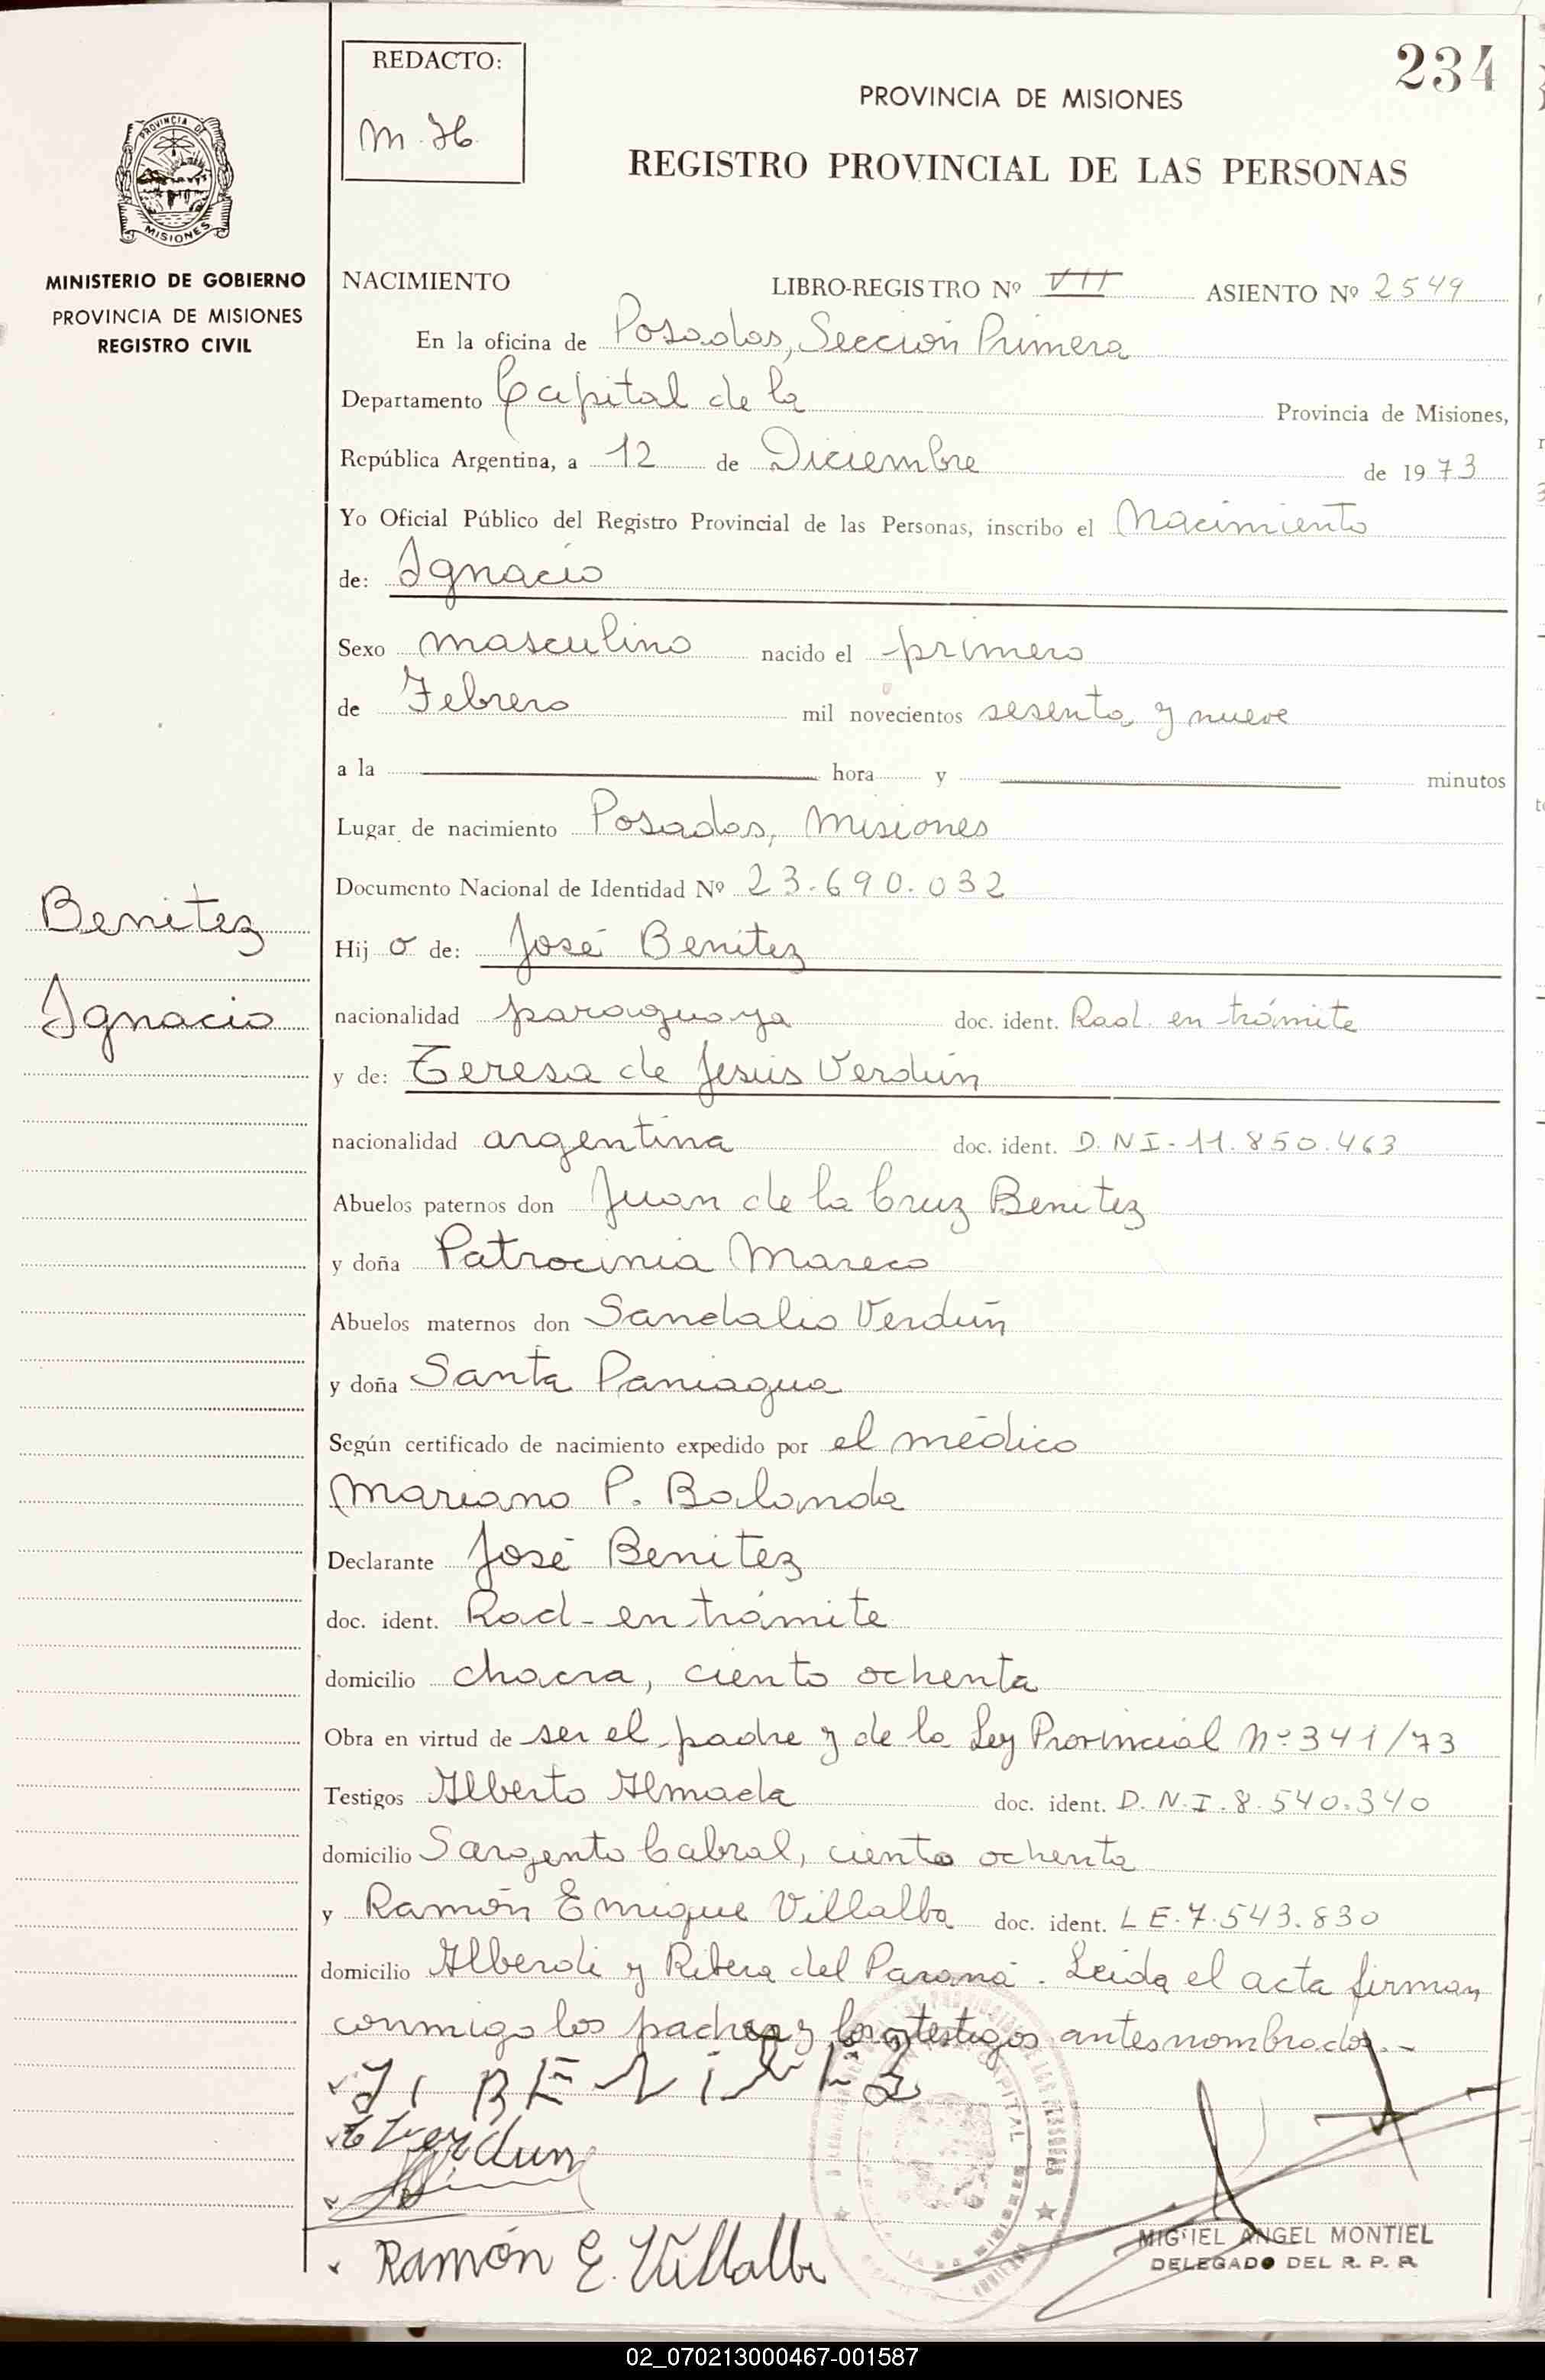 REDACTO:
M. H.
234
PROVINCIA DE MISIONES
REGISTRO PROVINCIAL DE LAS PERSONAS
PROVINCIA DE
MISIONES
MINISTERIO DE GOBIERNO
PROVINCIA DE MISIONES
REGISTRO CIVIL
NACIMIENTO LIBRO-REGISTRO Nº VII ASIENTO Nº 2549
En la oficina de Posadas, Sección Primera
Departamento Capital de la Provincia de Misiones,
República Argentina, a 12 de Diciembre de 1973
Yo Oficial Público del Registro Provincial de las Personas, inscribo el Nacimiento
de: Ignacio
Sexo masculino nacido el primero
de Febrero mil novecientos sesenta y nueve
a la hora y minutos
Lugar de nacimiento Posadas, Misiones
Documento Nacional de Identidad Nº 23.690.032
Benitez
Ignacio
Hijo de: José Benitez
nacionalidad paraguaya doc. ident. Rad. en trámite
y de: Teresa de Jesús Verdún
nacionalidad argentina doc. ident. D.NI-11.850.463
Abuelos paternos don Juan de la Cruz Benitez
y doña Patrocinia Mareco
Abuelos maternos don Sandalio Verdún
y doña Santa Paniagua
Según certificado de nacimiento expedido por el médico
Mariano P. Balanda
Declarante José Benitez
doc. ident. Rad-en trámite
domicilio chacra, ciento ochenta
Obra en virtud de ser el padre y de la Ley Provincial Nº 341/73
Testigos Alberto Almada doc. ident. D.N.I.8.540.340
domicilio Sargento Cabral, ciento ochenta
y Ramón Enrique Villalba doc. ident. LE.7.543.830
domicilio Alberdi y Ribera del Paraná. Leída el acta firman
conmigo los padres y los testigos antes nombrados.-
J. BENITEZ
T Verdun
Ramón E. Villalba
MIGUEL ANGEL MONTIEL
DELEGADO DEL R. P. P.
02_070213000467-001587